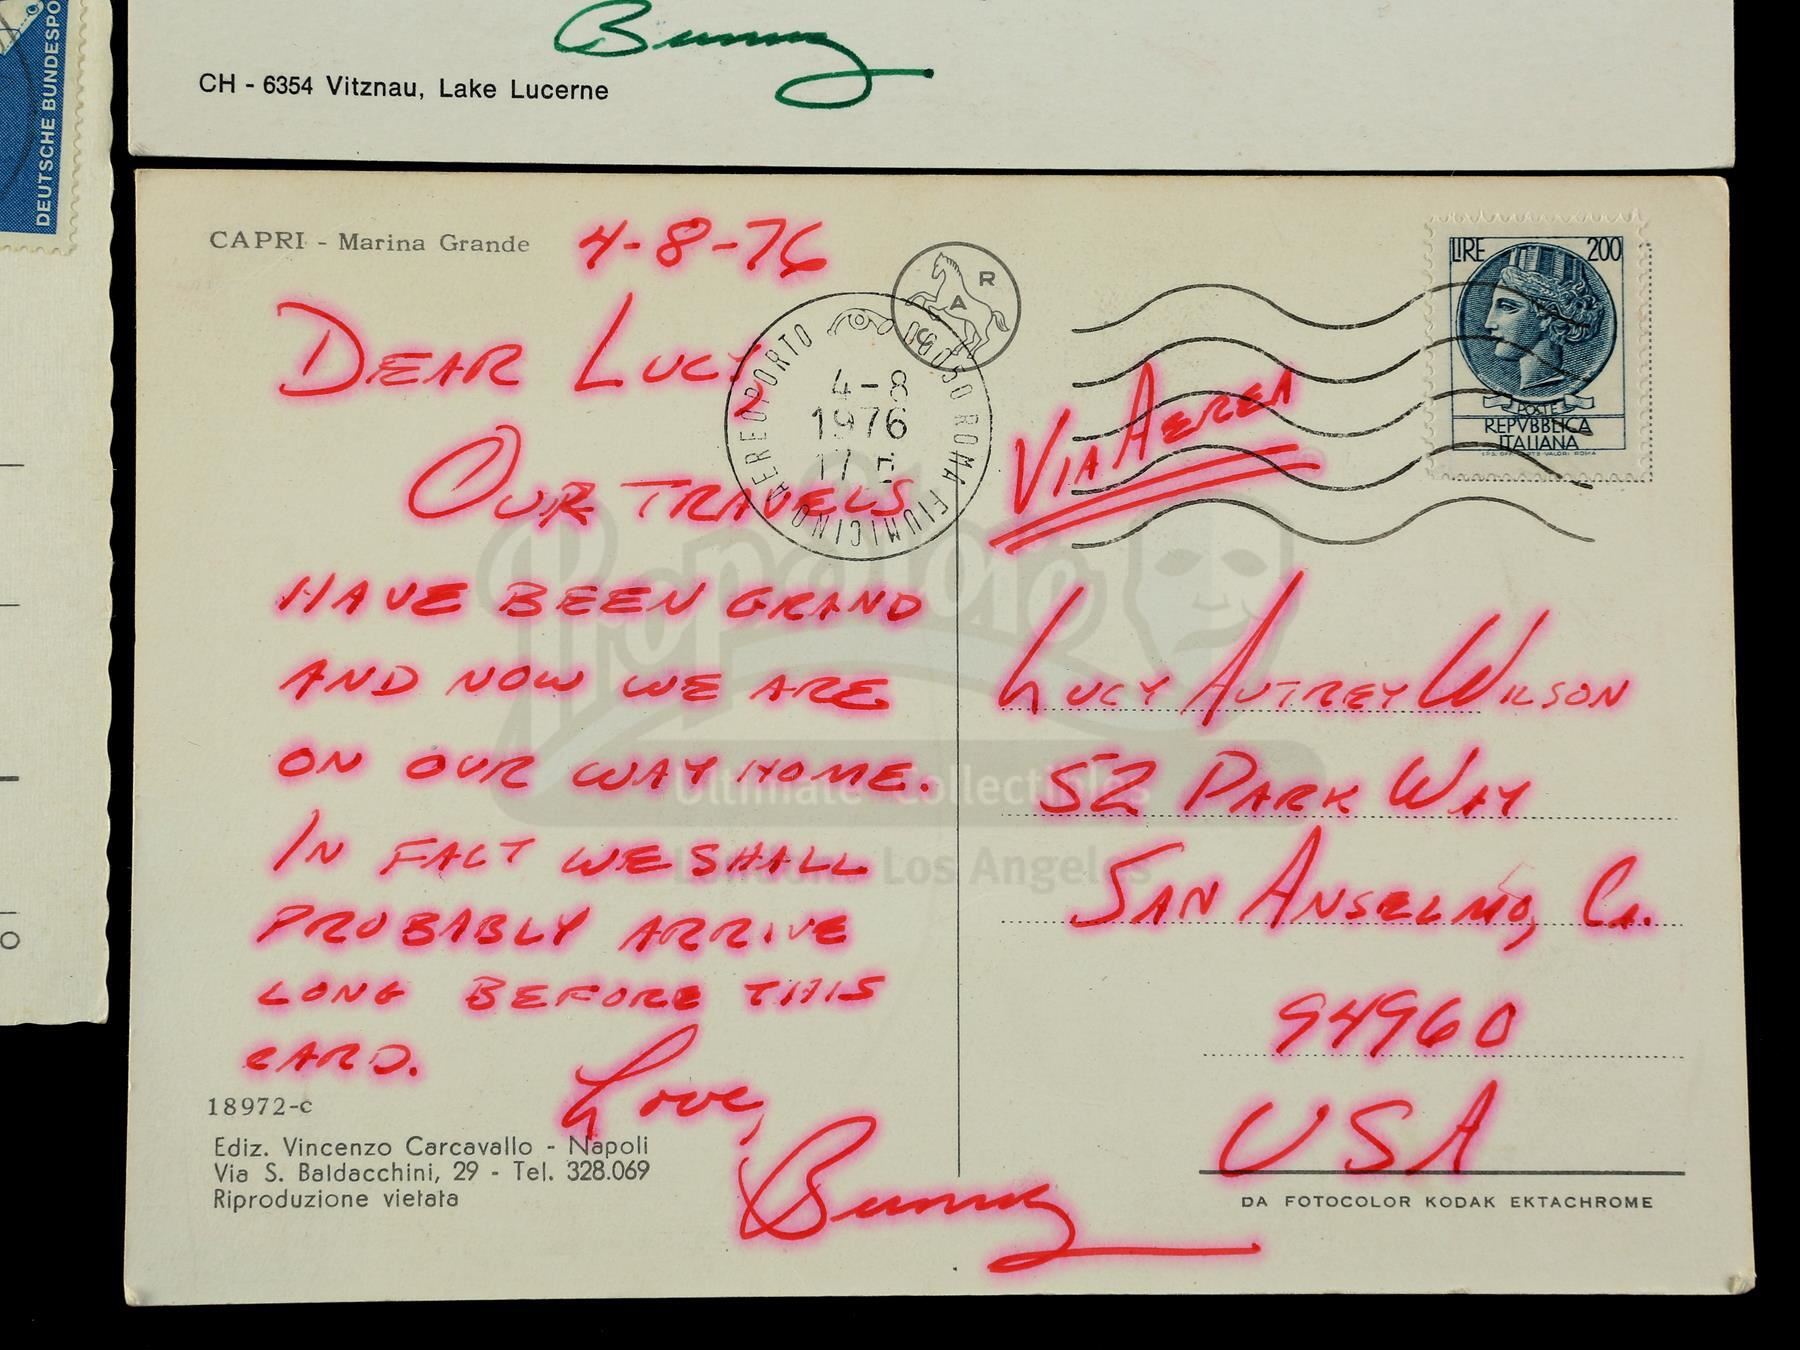 DEUTSCHE BUNDESPO
Bunny
CH - 6354 Vitznau, Lake Lucerne
CAPRI - Marina Grande
4-8-76
DEAR LUCY
OUR TRAVELS
HAVE BEEN GRAND
AND NOW WE ARE
ON OUR WAY HOME.
IN FACT WE SHALL
PROBABLY ARRIVE
LONG BEFORE THIS
CARD.
LOVE,
Bunny
18972-c
Ediz. Vincenzo Carcavallo - Napoli
Via S. Baldacchini, 29 - Tel. 328.069
Riproduzione vietata
R
A
AEREOPORTO
ROMA FIUMICINO
4-8
1976
17
LIRE 200
POSTE
REPVBBLICA
ITALIANA
VIA AEREA
LUCY AUTREY WILSON
52 PARK WAY
SAN ANSELMO, CA.
94960
USA
DA FOTOCOLOR KODAK EKTACHROME
Propstore
Ultimate Collectibles
London · Los Angeles